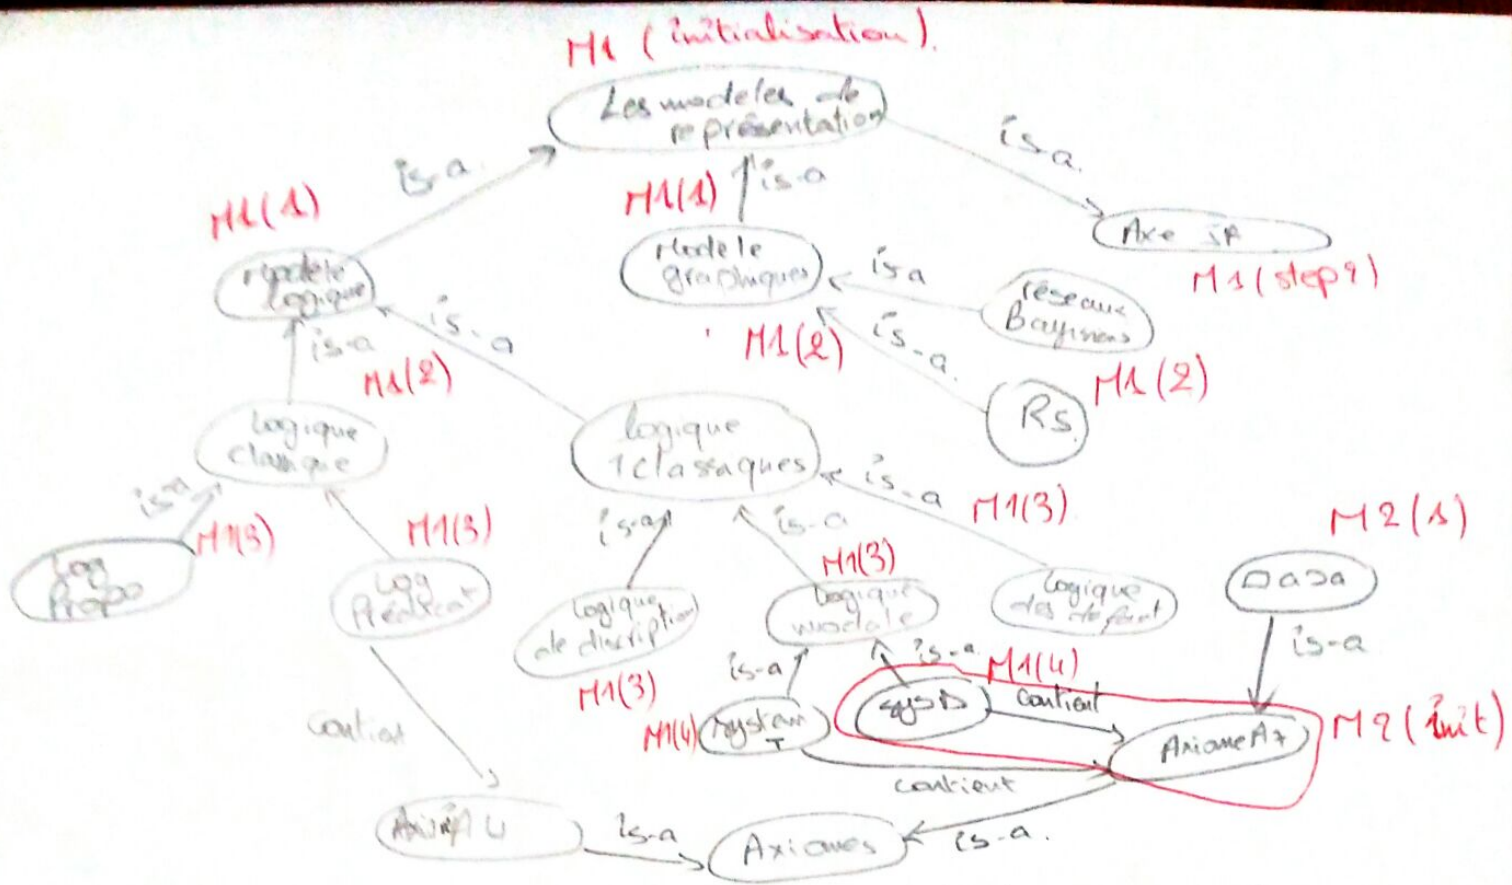 M1 (initialisation).
Les modeles de
représentation
is-a.
is-a
is-a.
M1(1)
M1(1)
Axe IA
M1(step1)
Modele
logique
Modele
graphiques
is a
réseaux
Bayisiens
is-a
is-a
is-a.
M1(2)
M1(2)
M1(2)
Rs.
logique
Classique
logique
classaques
is-a
is-a
M1(3)
M2(1)
is-a
is-a
M1(3)
M1(3)
M1(3)
DaDa
Log
Propo
Log
Prédicat
logique
de discription
logique
modale
logique
des defaut
is-a
is-a
is-a
M1(4)
M1(3)
M1(4)
system
T
sysD
contient
AxiomeA7
M2(init)
contient
contient
is-a
Axiomes
is-a.